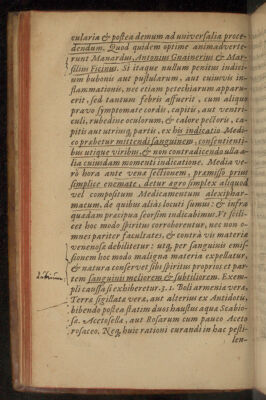 cularia & postea demum ad universalia proce-
dendum. Quod quidem optime animadverte-
runt Manardus, Antonius Gnainerius & Mar-
silius Ficinus. Si itaque nullum penitus indici-
um bubonis aut pustularum, aut cuiusvis in-
flammationis, nec etiam petechiarum apparu-
erit, sed tantum febris affuerit, cum aliquo
pravo symptomate cordis, capitis, aut ventri-
culi, rubedine oculorum, & calore pectoris, ca-
pitis aut utriusq; partis, ex his indicatio Medi-
co præbetur mittendi sanguinem, consentienti-
bus utique viribus, & non contradicendo ulla a-
lia cuiusdam momenti indicatione. Media ve-
rò hora ante vena sectionem, præmisso prius
simplice enemate, detur ægro simplex aliquod
vel compositum Medicamentum alexiphar-
macum, de quibus aliàs locuti sumus: & infra
quædam præcipua seorsim indicabimus. Vt scili-
cet hoc modo spiritus corroborentur, nec non o-
mnes pariter facultates, & contra vis materiæ
venenosæ debilitetur: utq; per sanguinis emis-
sionem hoc modo maligna materia expellatur,
& natura conservet sibi spiritus proprios et par-
tem sanguinis meliorem & subtiliorem. Exem-
pli caussa si exhiberetur. ʒ.i. Boli armenia vera,
Terræ sigillata vera, aut alterius ex Antidotis,
bibendo postea statim duos haustus aqua Scabio-
sa. Acetosella, aut Rosarum cum pauco Aceto
rosaceo. Neq; huic rationi curandi in hac pesti-
len-